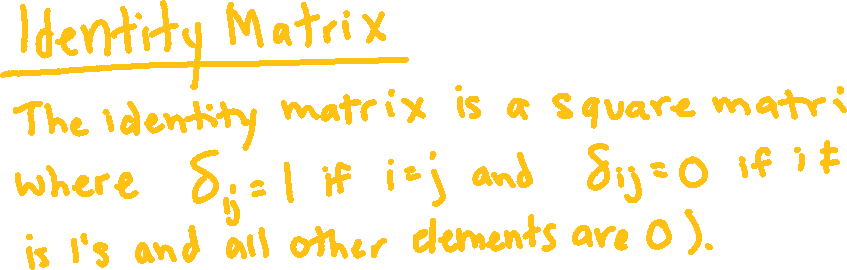 Identity Matrix
The identity matrix is a square matri
where δij = 1 if i=j and δij = 0 if i ≠
is 1's and all other elements are 0).